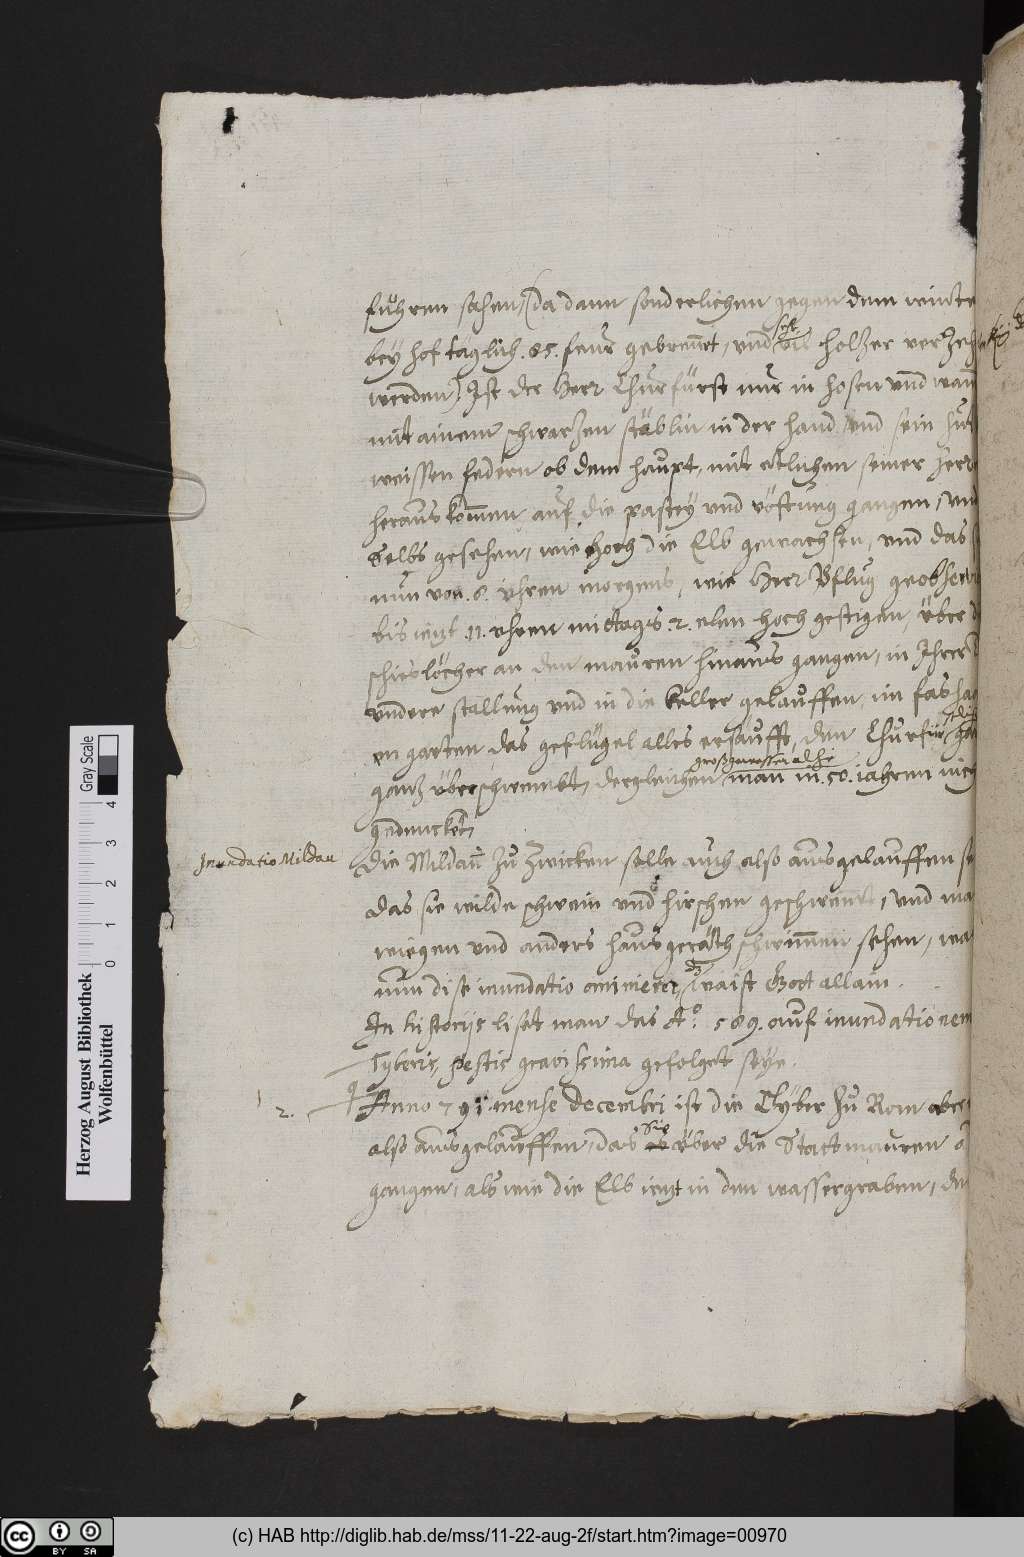 fuhren sahen, (da dann sonderlichen gegen dem winter
bey hof täglich .85. feur gebrennt, vnd seh. vil holzer verzeh
werden) Ist der Herr Churfürst nur in hosen vnd wam
mit ainem schwarzen stäblin in der hand, vnd sein hut
weissen federn ob dem haupt, mit etlichen seiner herr
heraus kommen, auf die pastey vnd vöstung gangen, vnd
Selbs gesehen, wie hoch die Elb gewachsen, vnd das
nun von .6. vhren morgens, wie Herr Pflug geobserv
bis iezt .11. vhren mittags .2. elen hoch gestigen, über d
schieslöcher an den mauren hinaus gangen, in Ihrer
vndere stallung vnd in die keller gelauffen, im fashan
en garten das geflügel alles ersäufft, den Churfür
ganz überschwembt, dergleichen man in .50. iahren nich
gedencket,
Inundatio Mildau
die Mildau zu Zwicken solle auch also ausgelauffen se
das sie wilde schwein vnd hirschen geschwemt, vnd ma
wiegen vnd anders hausgeräth schwimmen sehen, was
nun dise inundatio ominiere, dz waist Gott allain.
In historijs liset man das Aº. 589. auf inundationem
Tyberis, pestis gravissima gefolget seye.
2.
Anno 791. mense decembri ist die Tyber zu Rom aber
also ausgelauffen, das Sie über die Stattmauren
gangen, als wie die Elb iezt in den wassergraben, de
Herzog August Bibliothek
Wolfenbüttel
0 1 2 3 4
Gray Scale
cc BY SA
(c) HAB http://diglib.hab.de/mss/11-22-aug-2f/start.htm?image=00970